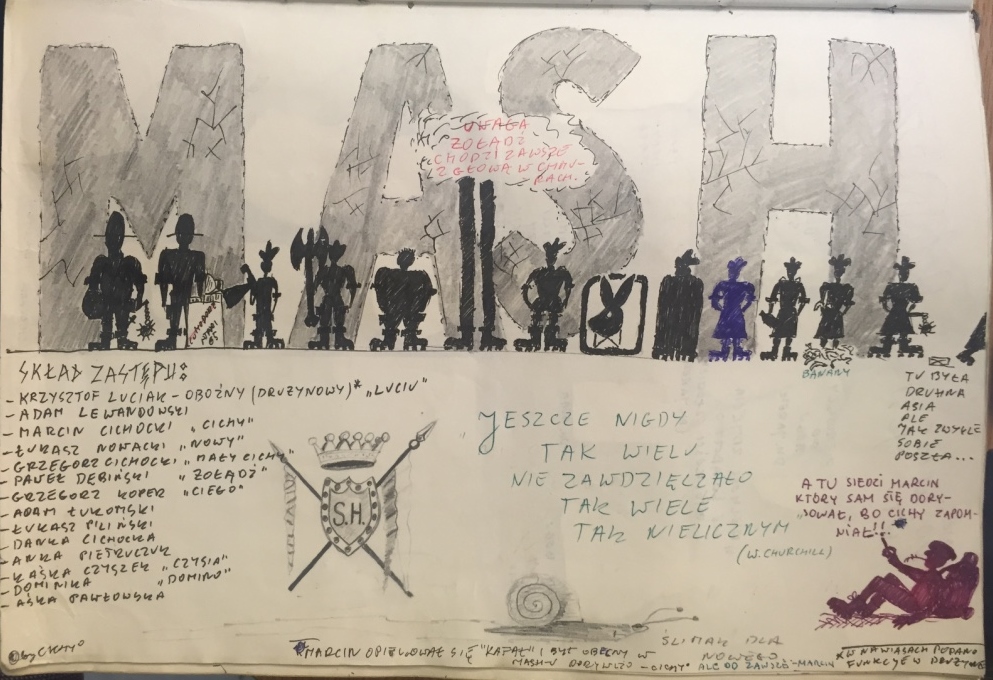 MASH
UWAGA
ŻOŁĄDŹ
CHODZI ZAWSZE
Z GŁOWĄ W CHMU-
RACH.
SKŁAD ZASTĘPU:
- KRZYSZTOF LUCIAK - OBOŹNY (DRUŻYNOWY)* „LUCIU"
- ADAM LEWANDOWSKI
- MARCIN CICHOCKI „CICHY"
- ŁUKASZ NOWACKI „NOWY"
- GRZEGORZ CICHOCKI „MAŁY CICHY"
- PAWEŁ DĘBIŃSKI „ŻOŁĄDŹ"
- GRZEGORZ KOPER „CIEGO"
- ADAM ŁUKOMSKI
- ŁUKASZ PILIŃSKI
- DANKA CICHOCKA
- ANKA PIETRUCZUK
- KAŚKA CZYSZEK „CZYSIA"
- DOMINIKA „DOMINO"
- AŚKA PAWŁOWSKA
S.H.
JESZCZE NIGDY
TAK WIELU
NIE ZAWDZIĘCZAŁO
TAK WIELE
TAK NIELICZNYM
(W. CHURCHILL)
BANANY
TU BYŁA
DRUHNA
ASIA
ALE
JAK ZWYKLE
SOBIE
POSZŁA...
A TU SIEDZI MARCIN
KTÓRY SAM SIĘ DORY-
SOWAŁ, BO CICHY ZAPOM-
NIAŁ!!
ŚLIMAK DLA
NOWEGO
© by CICHY
MARCIN OPIEKOWAŁ SIĘ "KAPAŁ" I BYŁ OBECNY W
MASH-U DORYWCZO - CICHY ALE OD ZAWSZE - MARCIN
* W NAWIASACH PODANO
FUNKCJE W DRUŻYNIE